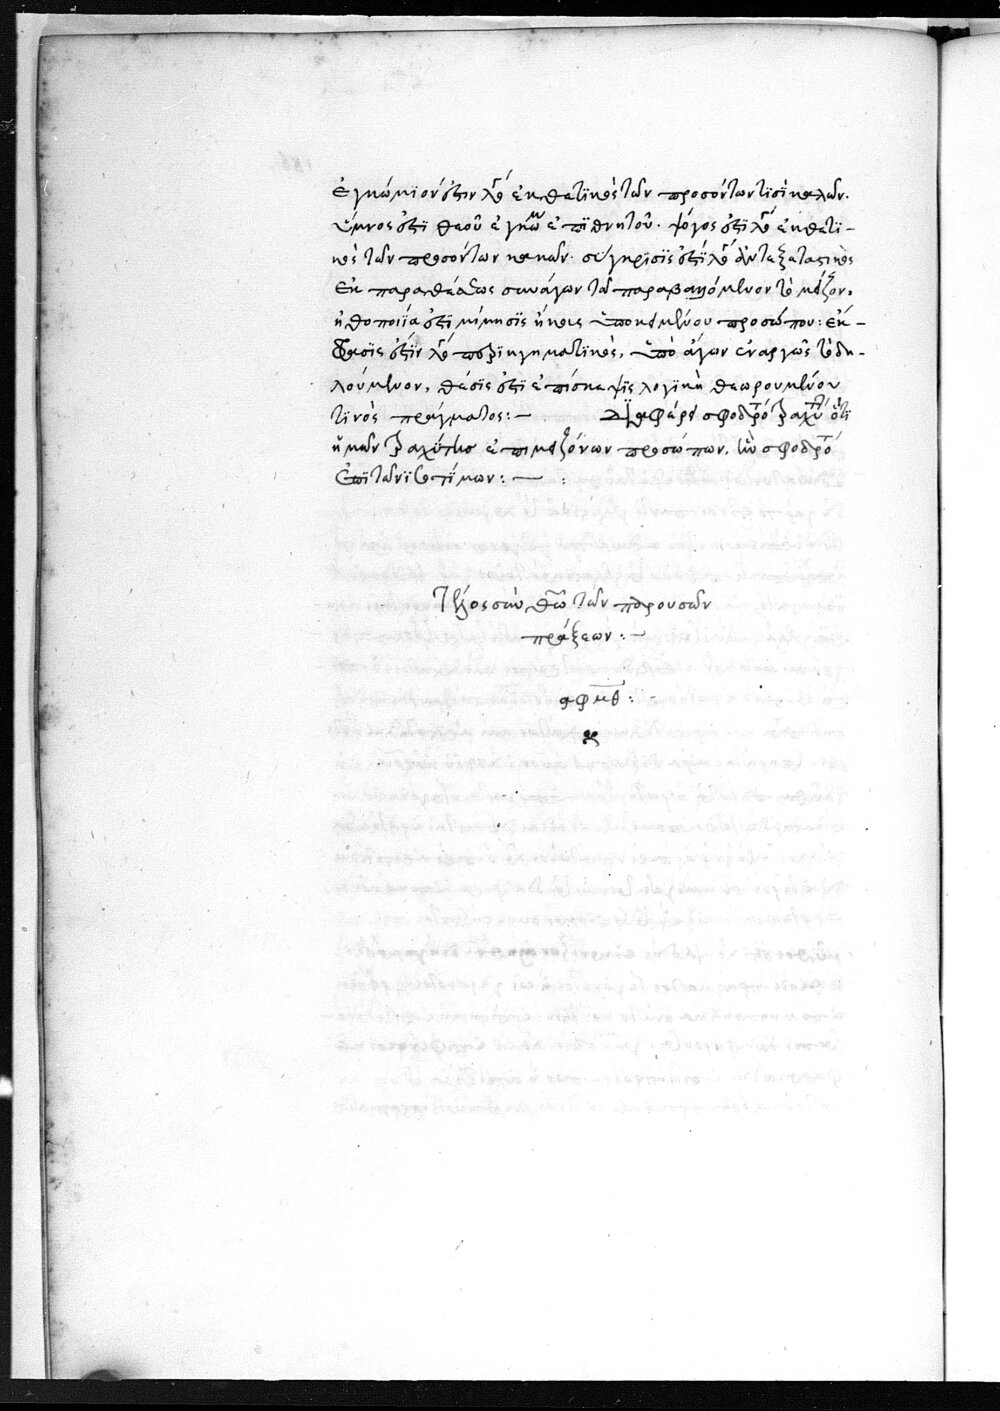 ἐγκώμιον ἐστιν λόγος ἐκθετικὸς τῶν προσόντων τισὶ καλῶν.
ὕμνος ἐστὶ θεοῦ ἐγκώμιον ἐπὶ θνητοῦ. ψόγος ἐστὶ λόγος ἐκθετι-
κὸς τῶν προσόντων κακῶν. σύγκρισις ἐστὶ λόγος ἀντεξεταστικὸς
ἐκ παραθέσεως συνάγων τῶ παραβαλλομένω τὸ μεῖζον.
ἠθοποιΐα ἐστὶ μίμησις ἤθους ὑποκειμένου προσώπου: ἔκ-
φρασις ἐστὶν λόγος περιηγηματικὸς, ὑπὸ ἄγων ἐναργῶς τὸ δη-
λούμενον, θέσις ἐστὶ ἐπίσκεψις λογικὴ θεωρουμένου
τινὸς πράγματος:— Διαφέρει σφοδρότης τραχύτητος ὅτι
ἡ μὲν τραχύτης ἐπὶ μειζόνων προσώπων. ἡ δὲ σφοδρότης
ἐπὶ τῶν ἰσοτίμων:—
Τέλος σὺν θεῶ τῶν παρουσῶν
πράξεων:—
αφμθ: